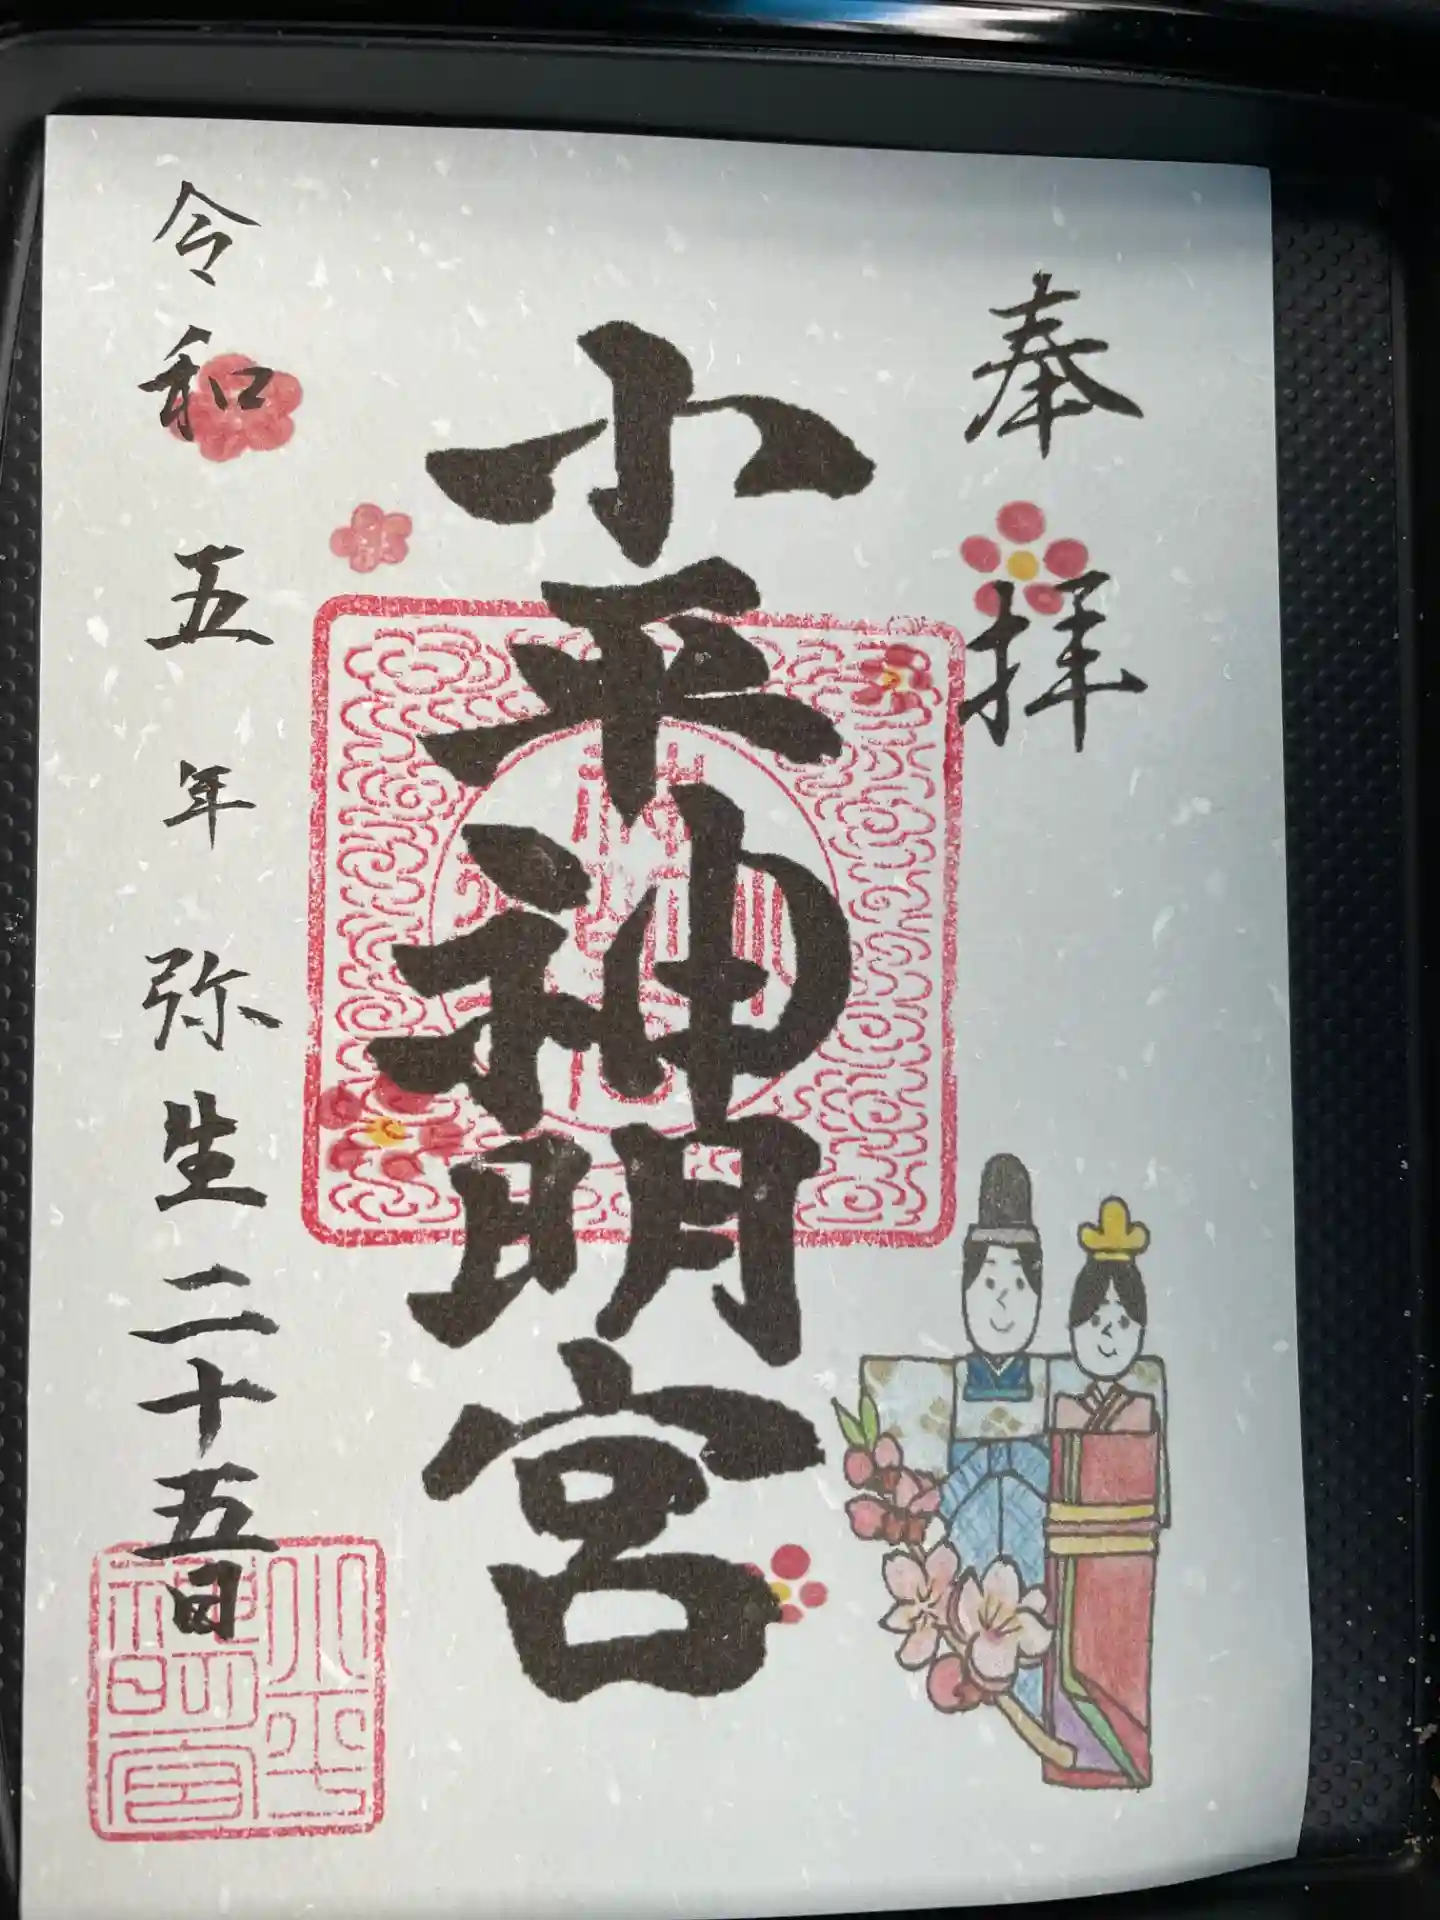 奉拝
小平神明宮
令和五年弥生二十五日
小平
神明宮